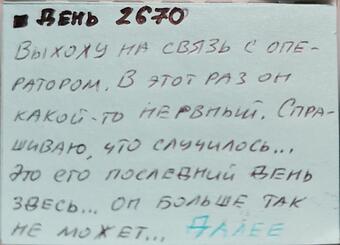 ■ ДЕНЬ 2670
ВЫХОЖУ НА СВЯЗЬ С ОПЕ-
РАТОРОМ. В ЭТОТ РАЗ ОН
КАКОЙ-ТО НЕРВНЫЙ. СПРА-
ШИВАЮ, ЧТО СЛУЧИЛОСЬ...
ЭТО ЕГО ПОСЛЕДНИЙ ДЕНЬ
ЗДЕСЬ... ОН БОЛЬШЕ ТАК
НЕ МОЖЕТ... ДАЛЕЕ